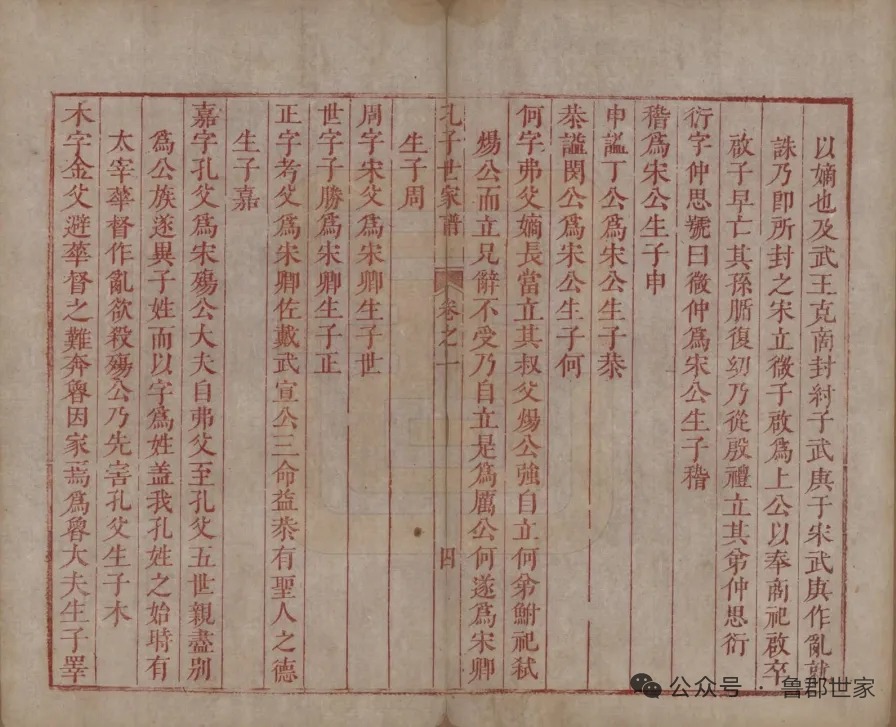 以嫡也及武王克商封紂子武庚于宋武庚作亂就
誅乃即所封之宋立微子啟爲上公以奉商祀啟卒
啟子早亡其孫腯復幼乃從殷禮立其弟仲思衍
衍字仲思號曰微仲爲宋公生子稽
稽爲宋公生子申
申謚丁公爲宋公生子恭
恭謚閔公爲宋公生子何
何字弗父嫡長當立其叔父煬公強自立何弟鮒祀弒
煬公而立兄辭不受乃自立是爲厲公何遂爲宋卿
生子周
孔子世家譜 卷之一 四
周字宋父爲宋卿生子世
世字子勝爲宋卿生子正
正字考父爲宋卿佐戴武宣公三命益恭有聖人之德
生子嘉
嘉字孔父爲宋殤公大夫自弗父至孔父五世親盡別
爲公族遂異子姓而以字爲姓蓋我孔姓之始時有
太宰華督作亂欲殺殤公乃先害孔父生子木
木字金父避華督之難奔魯因家焉爲魯大夫生子睪
公众号 · 鲁郡世家